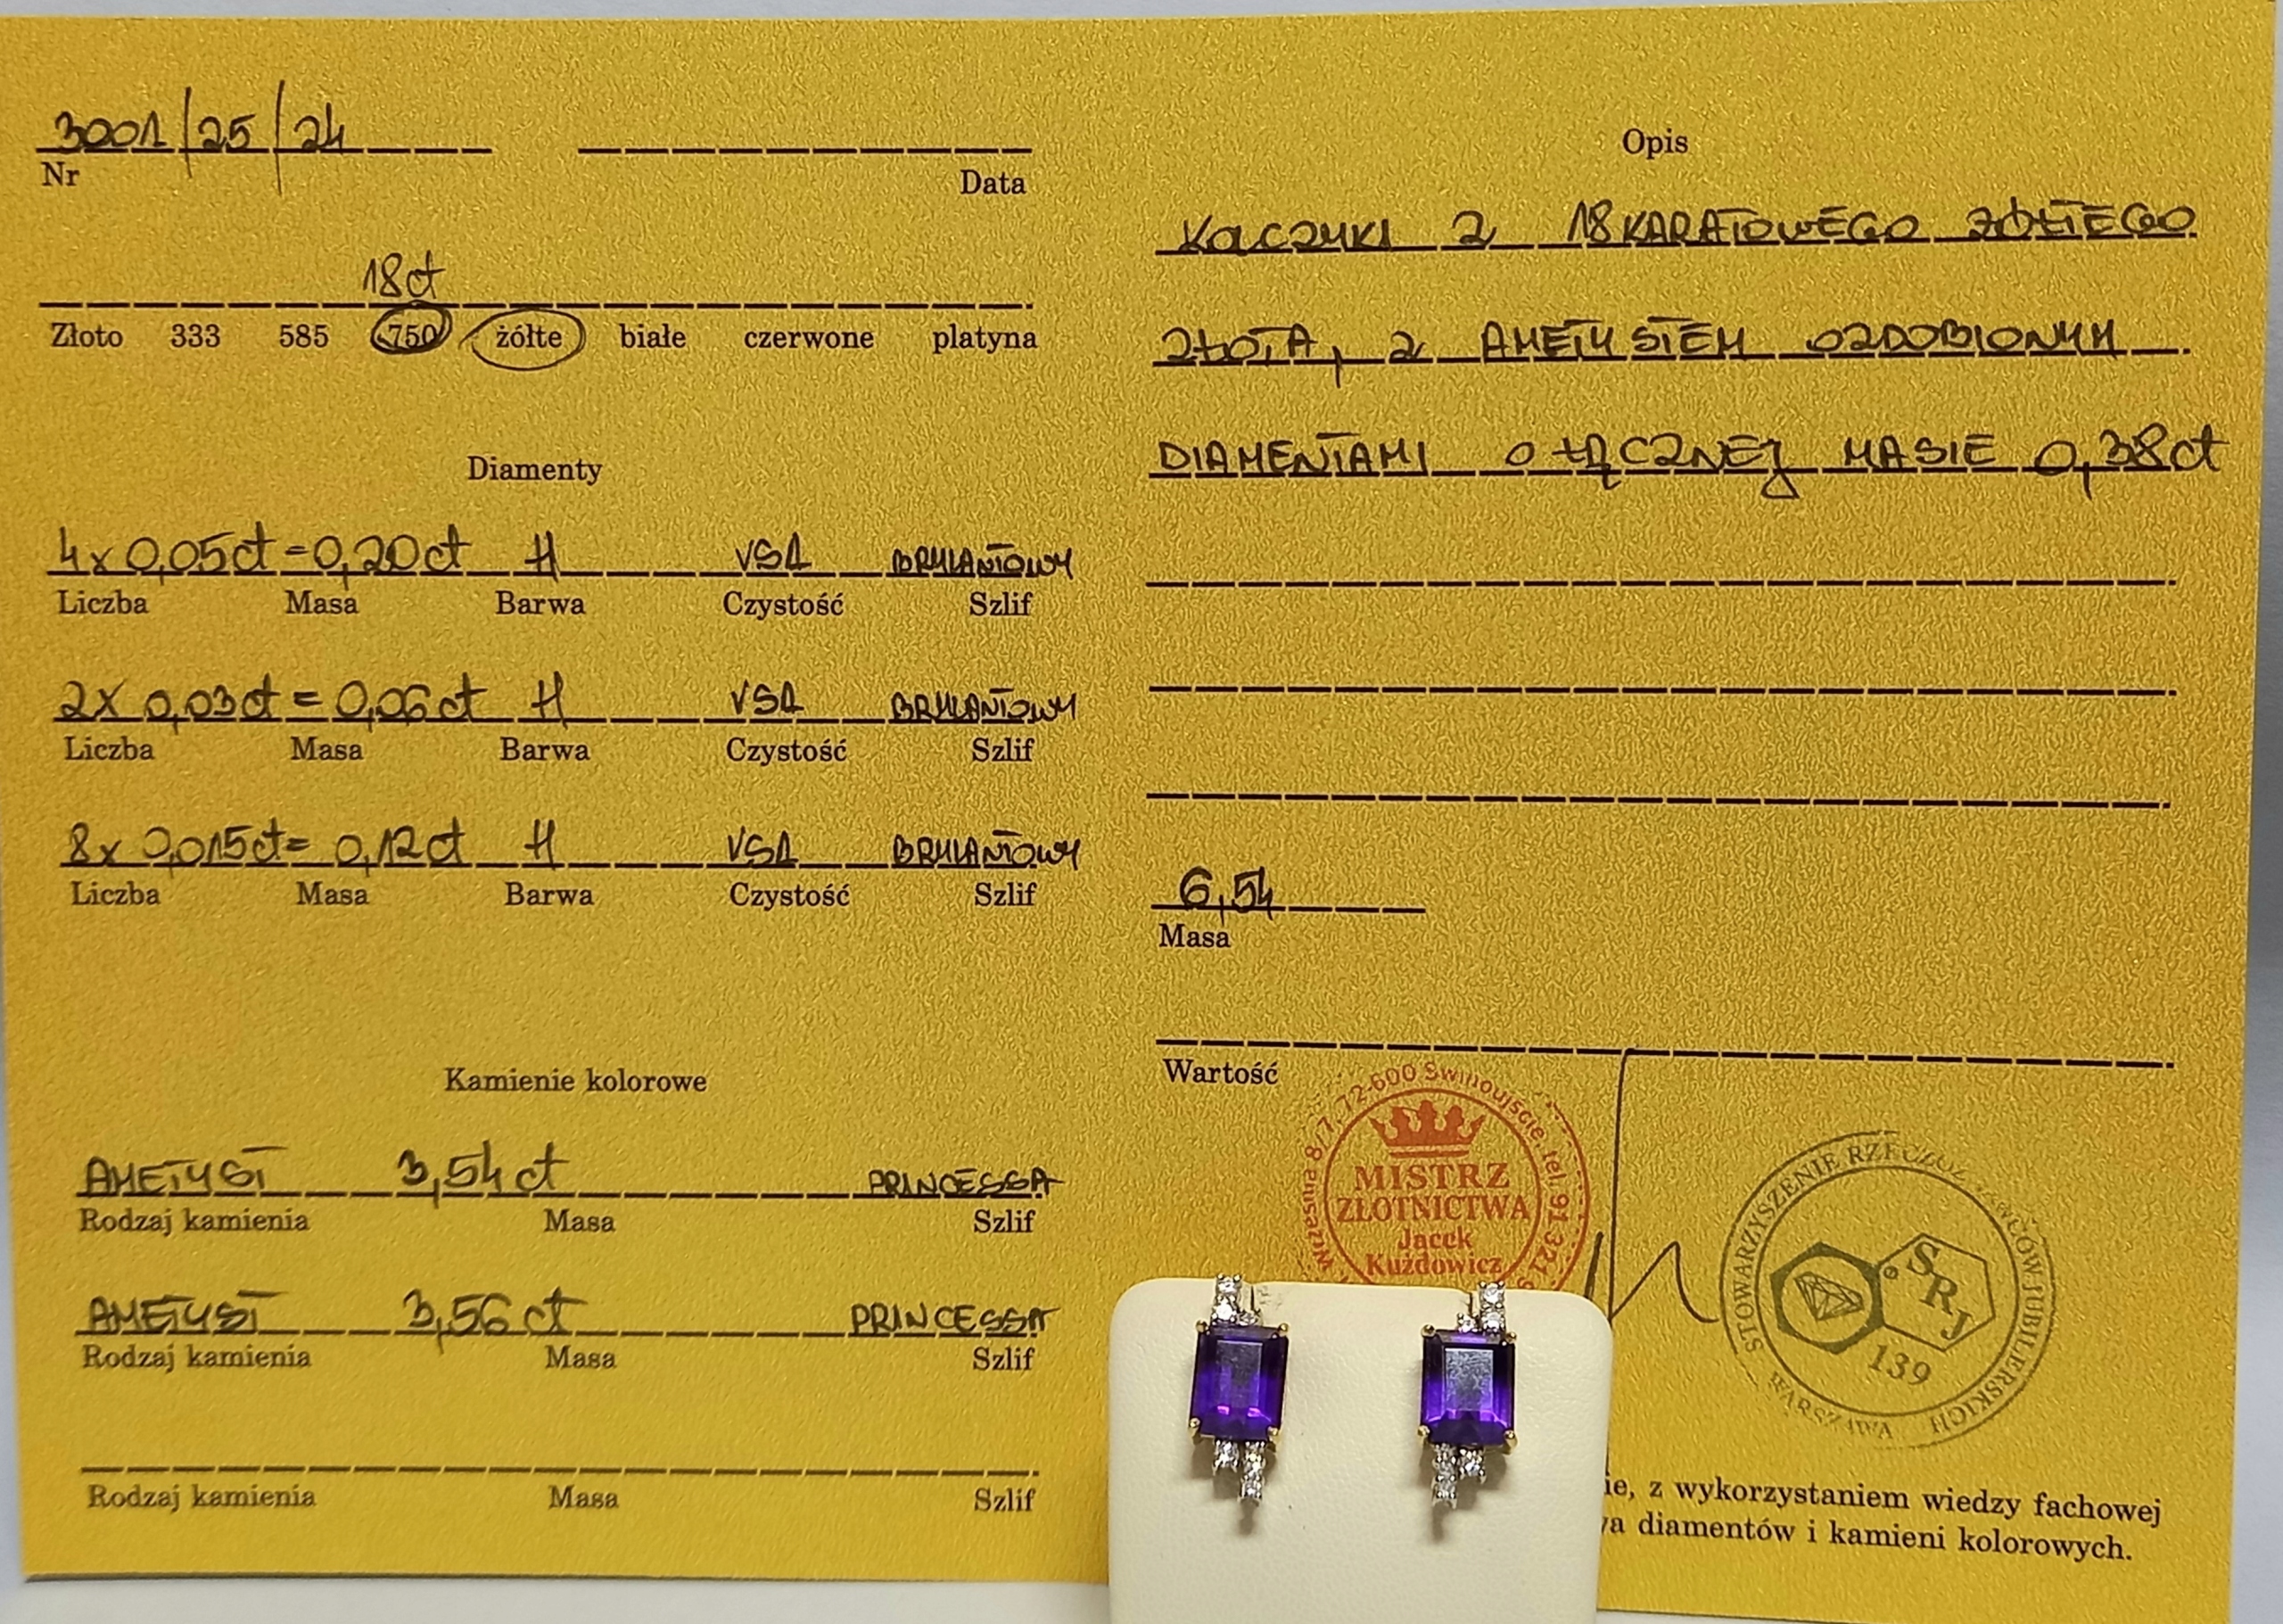 3001/25/24
Nr Data
18ct
Złoto 333 585 750 żółte białe czerwone platyna
Diamenty
4x0,05ct=0,20ct H VS1 BRYLANTOWY
Liczba Masa Barwa Czystość Szlif
2x 0,03ct = 0,06ct H VS1 BRYLANTOWY
Liczba Masa Barwa Czystość Szlif
8x 0,015ct= 0,12ct H VS1 BRYLANTOWY
Liczba Masa Barwa Czystość Szlif
Kamienie kolorowe
AMETYST 3,54ct PRINCESSA
Rodzaj kamienia Masa Szlif
AMETYST 3,56ct PRINCESSA
Rodzaj kamienia Masa Szlif
Rodzaj kamienia Masa Szlif
Opis
KOLCZYKI Z 18KARATOWEGO ŻÓŁTEGO
ZŁOTA, Z AMETYSTEM OZDOBIONYM
DIAMENTAMI O ŁĄCZNEJ MASIE 0,38ct
6,54
Masa
Wartość
Wrzesnia 8/7, 72-600 Świnoujście, tel. 91 321
MISTRZ
ZŁOTNICTWA
Jacek
Kużdowicz
STOWARZYSZENIE JUBILERSKICH
SRJ
139
WARSZAWA
ie, z wykorzystaniem wiedzy fachowej
a diamentów i kamieni kolorowych.